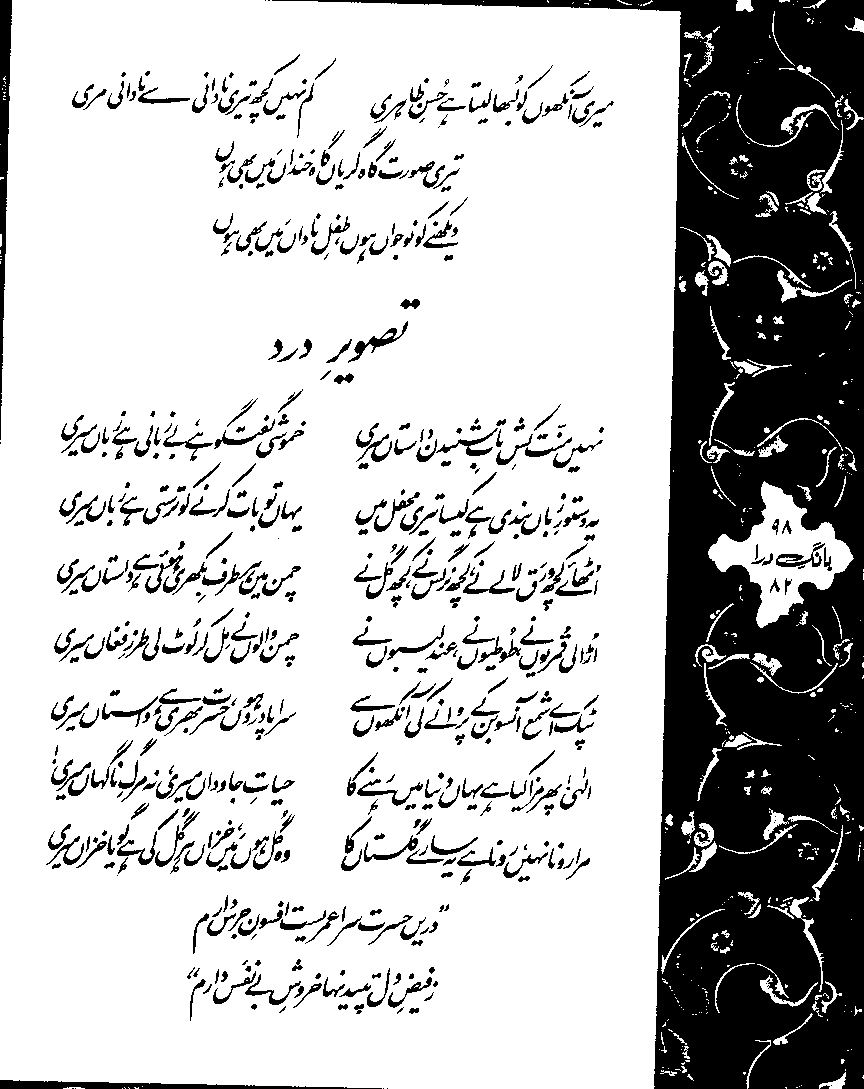 میری آنکھوں کو لُبھا لیتا ہے حُسنِ ظاہری کم نہیں کچھ تیری نادانی سے نادانی مری
تیری صورت گاہ گریاں گاہ خنداں مَیں بھی ہوں
دیکھنے کو نوجواں ہوں، طفلِ ناداں مَیں بھی ہوں
تصویرِ درد
نہیں منّت کشِ تابِ شنیدن داستاں میری خموشی گفتگو ہے، بے زبانی ہے زباں میری
یہ دستورِ زباں بندی ہے کیسا تیری محفل میں یہاں تو بات کرنے کو ترستی ہے زباں میری
اُٹھائے کچھ وَرق لالے نے، کچھ نرگس نے، کچھ گُل نے چمن میں ہر طرف بِکھری ہُوئی ہے داستاں میری
اُڑالی قُمریوں نے، طُوطیوں نے، عندلیبوں نے چمن والوں نے مِل کر لُوٹ لی طرزِ فغاں میری
ٹپک اے شمع آنسو بن کے پروانے کی آنکھوں سے سراپا درد ہوں، حسرت بھری ہے داستاں میری
الٰہی! پھر مزا کیا ہے یہاں دنیا میں رہنے کا حیاتِ جاوداں میری، نہ مرگِ ناگہاں میری!
مرا رونا نہیں، رونا ہے یہ سارے گلستاں کا وہ گُل ہوں مَیں، خزاں ہر گُل کی ہے گویا خزاں میری
"دریں حسرت سرا عمریست افسونِ جرس دارم
ز فیضِ دل تپیدنہا خروشِ بے نفَس دارم"
۹۸
بانگِ درا
۸۲